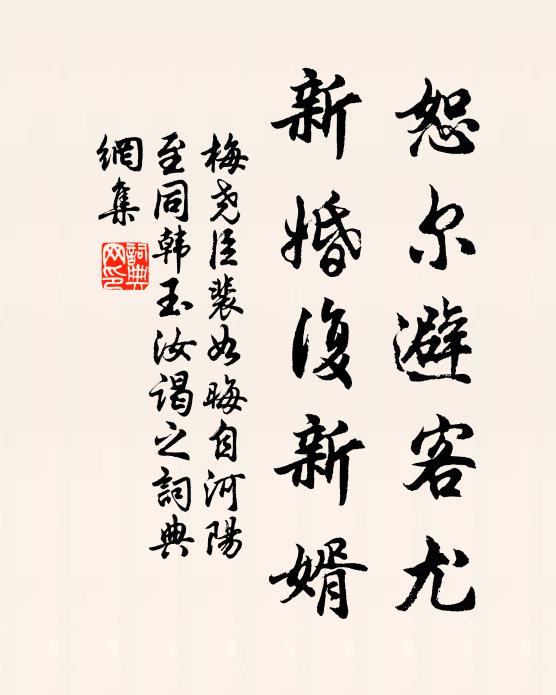 恕尔避客尤
新婚復新婿
梅尧臣裴如晦自河陽
至同韩玉汝谒之詞典
網集
詞典
网印